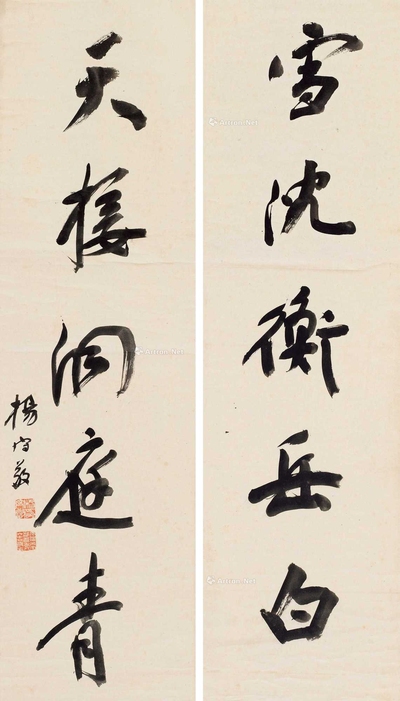 雪沈衡岳白
天接洞庭青
楊守敬